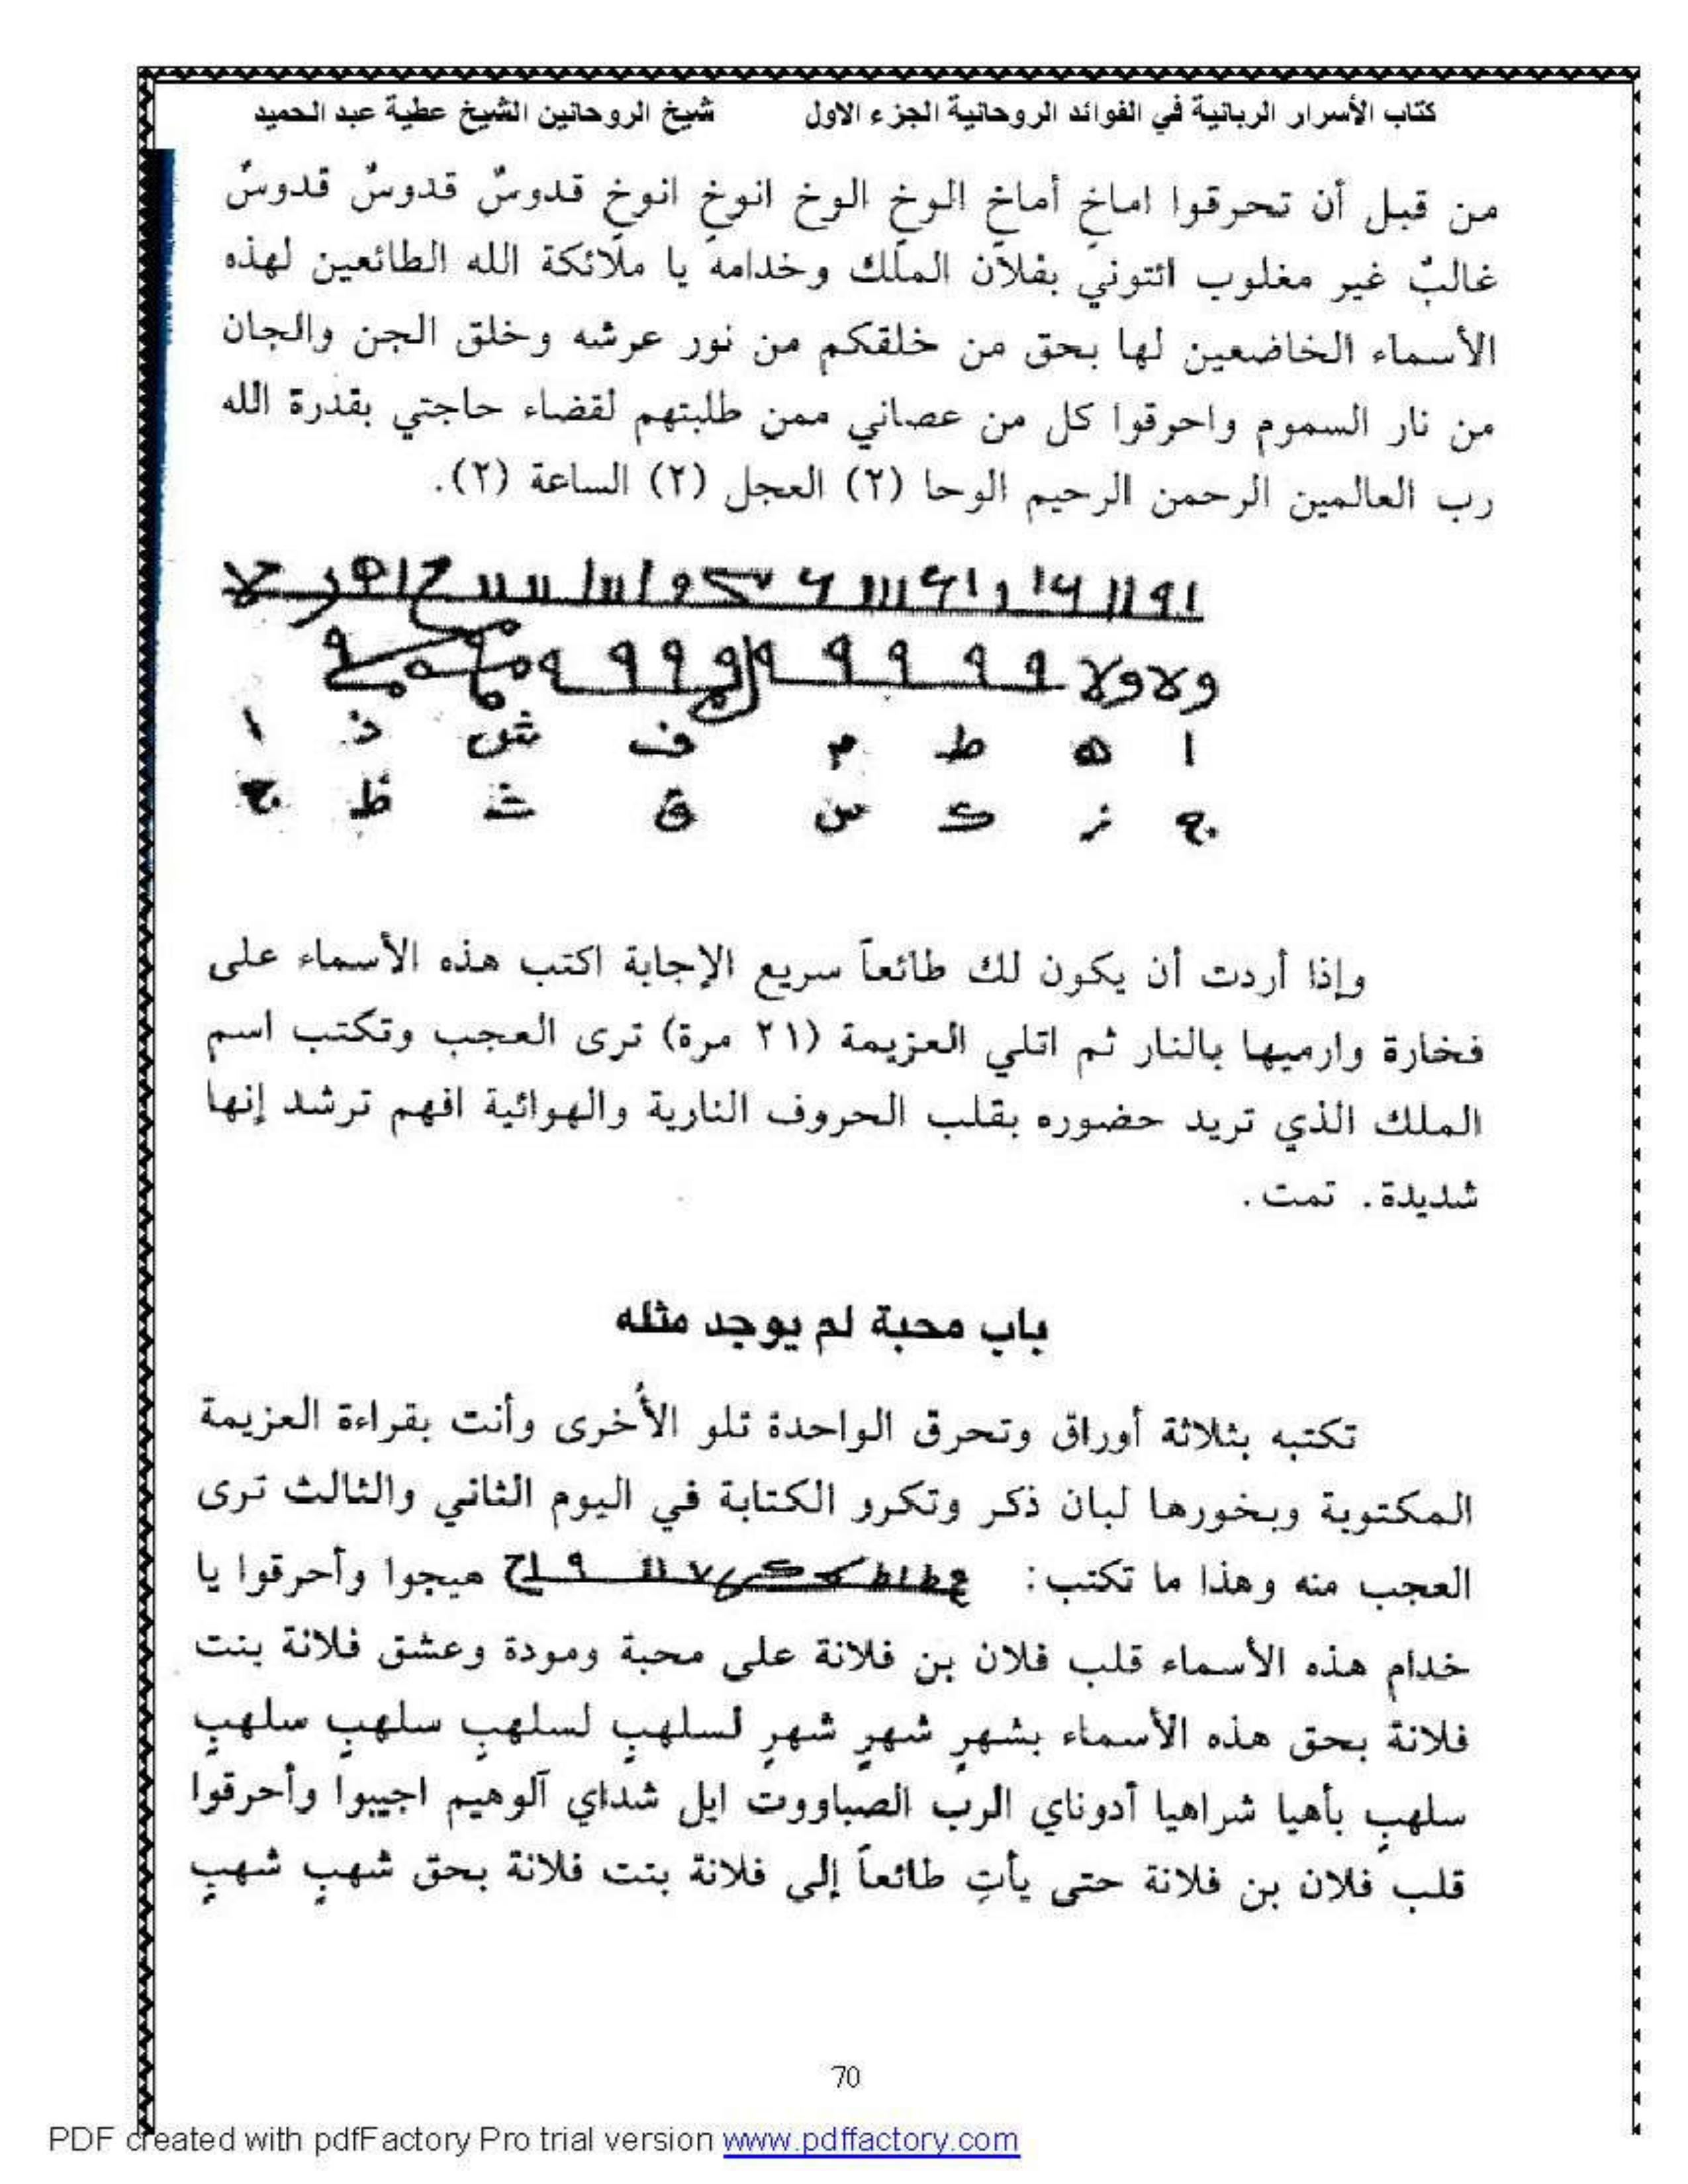 كتاب الأسرار الربانية في الفوائد الروحانية الجزء الاول شيخ الروحانين الشيخ عطية عبد الحميد
من قبل أن تحرقوا اماخٍ أماخٍ الوخٍ الوخ انوخٍ انوخٍ قدوسٌ قدوسٌ قدوسٌ
غالبٌ غير مغلوب ائتوني بفلان الملك وخدامه يا ملائكة الله الطائعين لهذه
الأسماء الخاضعين لها بحق من خلقكم من نور عرشه وخلق الجن والجان
من نار السموم واحرقوا كل من عصاني ممن طلبتهم لقضاء حاجتي بقدرة الله
رب العالمين الرحمن الرحيم الوحا (٢) العجل (٢) الساعة (٢).
ا ه ط م ف ش ذ ا
ج ز ك س ق ث ظ ج
وإذا أردت أن يكون لك طائعاً سريع الإجابة اكتب هذه الأسماء على
فخارة وارميها بالنار ثم اتلي العزيمة (٢١ مرة) ترى العجب وتكتب اسم
الملك الذي تريد حضوره بقلب الحروف النارية والهوائية افهم ترشد إنها
شديدة. تمت.
باب محبة لم يوجد مثله
تكتبه بثلاثة أوراق وتحرق الواحدة تلو الأُخرى وأنت بقراءة العزيمة
المكتوبة وبخورها لبان ذكر وتكرر الكتابة في اليوم الثاني والثالث ترى
العجب منه وهذا ما تكتب: هيجوا وأحرقوا يا
خدام هذه الأسماء قلب فلان بن فلانة على محبة ومودة وعشق فلانة بنت
فلانة بحق هذه الأسماء بشهرٍ شهرٍ شهرٍ لسلهبٍ لسلهبٍ سلهبٍ سلهبٍ
سلهبٍ بأهيا شراهيا أدوناي الرب الصباووت ايل شداي آلوهيم اجيبوا وأحرقوا
قلب فلان بن فلانة حتى يأتِ طائعاً إلى فلانة بنت فلانة بحق شهبٍ شهبٍ
70
PDF created with pdfFactory Pro trial version www.pdffactory.com